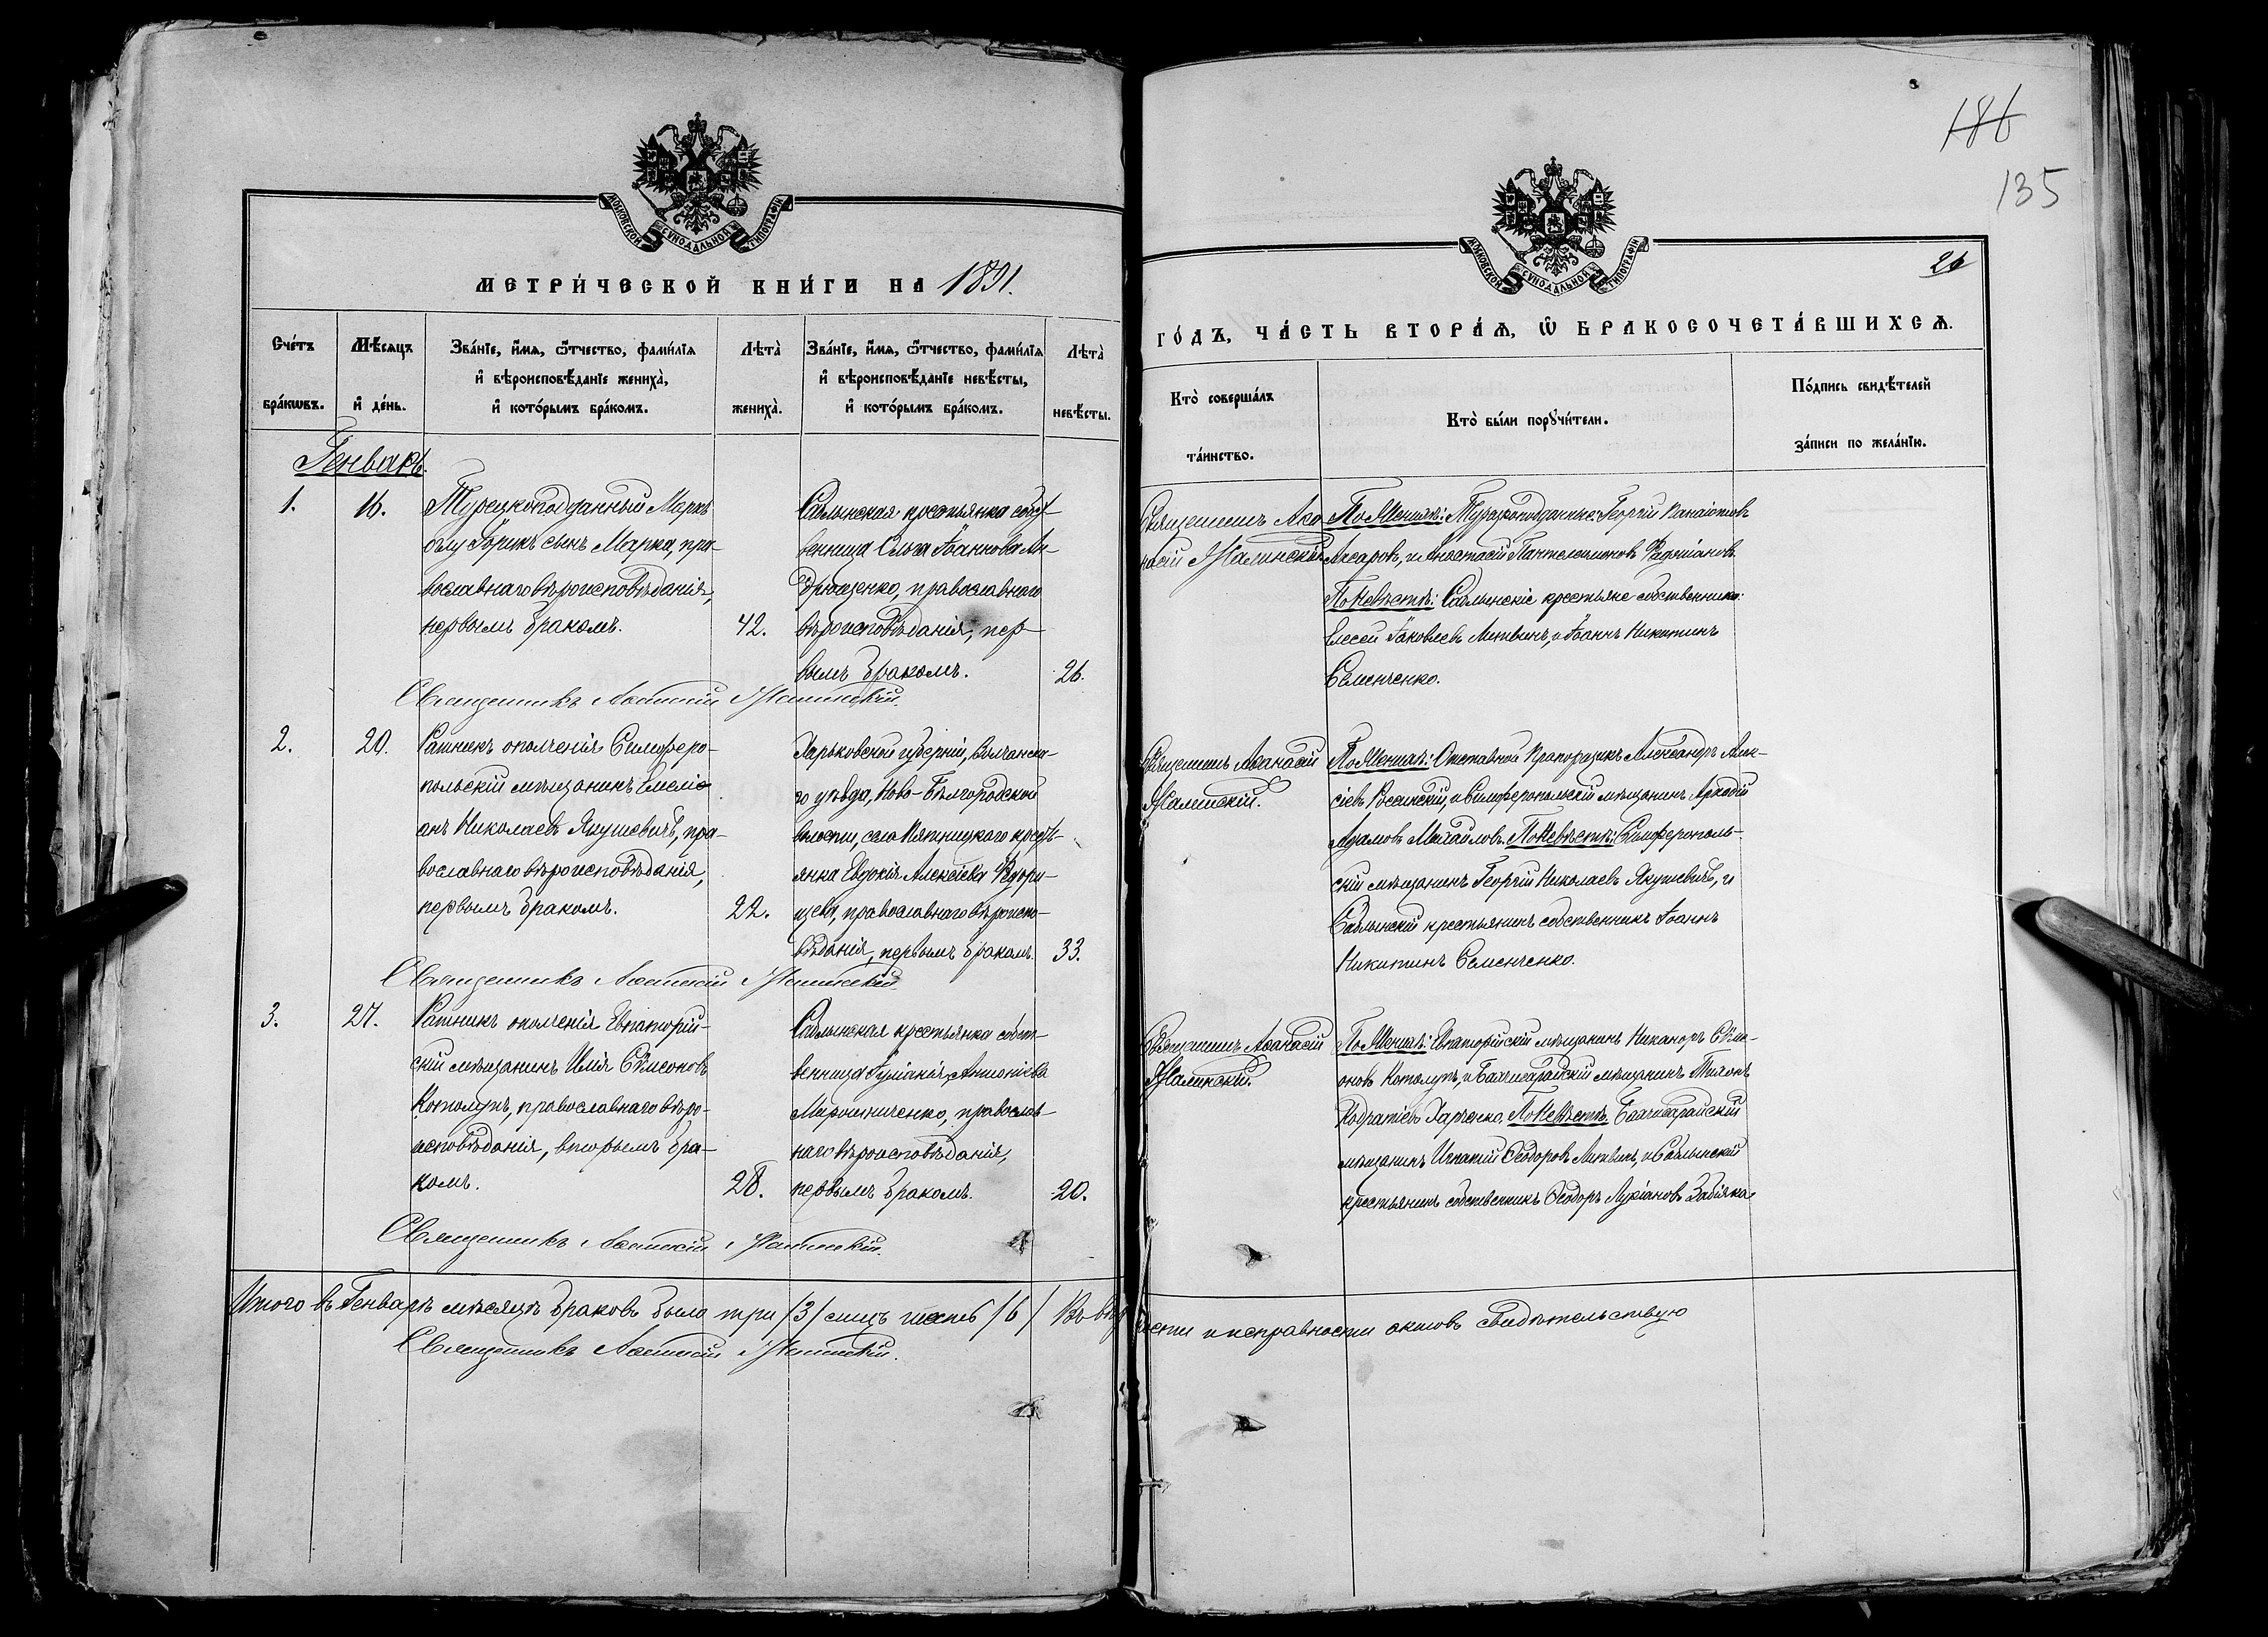 186
135
26
МОСКОВСКОЙ СѴНОДАЛЬНОЙ ТИПОГРАФІИ
МЕТРИ́ЧЕСКОЙ КНИ́ГИ НА 1891.
МОСКОВСКОЙ СѴНОДАЛЬНОЙ ТИПОГРАФІИ
ГО́ДЪ, ЧА́СТЬ ВТОРА́Ѧ, Ѿ БРАКОСОЧЕТА́ВШИХСѦ.
Сче́тъ бра́кѡвъ.
Мѣ́сяцъ и҆ де́нь.
Зва́нїе, и҆́мя, ѻ҆́тчество, фами́лїя
и҆ вѣроисповѣ́данїе жениха̀,
и҆ кото́рымъ бра́комъ.
Лѣ́та жениха̀.
Зва́нїе, и҆́мя, ѻ҆́тчество, фами́лїя
и҆ вѣроисповѣ́данїе невѣ́сты,
и҆ кото́рымъ бра́комъ.
Лѣ́та невѣ́сты.
Кто̀ соверша́лъ
та́инство.
Кто̀ бы́ли порꙋчи́тели.
По́дпись свидѣ́телей
за́писи по жела́нїю.
Генварь.
1.
16.
Турецкоподданный Маркъ
оглу Іорикъ сынъ Марка, пра-
вославнаго вѣроисповѣданія,
первымъ бракомъ.
42.
Саблынская крестьянка собст-
венница Ольга Іоаннова Ан-
дрющенко, православнаго
вѣроисповѣданія, пер-
вымъ бракомъ.
26.
Священникъ Аѳа-
насій Жалинскій
По Женихѣ: Турецкоподданные: Георгій Панаіотовъ
Лазаровъ, и Анастасій Пантелеимоновъ
По Невѣстѣ: Саблынскіе крестьяне собственники:
Елесей Іаковлевъ Литвинъ, и Іоаннъ Никитинъ
Семенченко.
Священникъ Аѳанасій Жалинскій.
2.
20.
Ратникъ ополченія Симферо-
польскій мѣщанинъ Емелі-
анъ Николаевъ Якушевичъ, пра-
вославнаго вѣроисповѣданія,
первымъ бракомъ.
22.
Харьковской губерніи, Волчанска-
го уѣзда, Ново-Бѣлгородской
волости, села Пятницкаго кресть-
янка Евдокія Алексіева Федори-
щева, православнаго вѣроиспо-
вѣданія, первымъ бракомъ.
33.
Священникъ Аѳанасій
Жалинскій.
По Женихѣ: Отставной Прапорщикъ Александръ Алек-
сіевъ и Симферопольскій мѣщанинъ Аркадій
Адамовъ Михайловъ. По Невѣстѣ: Симферополь-
скій мѣщанинъ Георгій Николаевъ Якушевичъ, и
Саблынскій крестьянинъ собственникъ Іоаннъ
Никитинъ Семенченко.
Священникъ Аѳанасій Жалинскій.
3.
27.
Ратникъ ополченія Евпаторій-
скій мѣщанинъ Илія Сѵмеоновъ
Котолупъ, православнаго вѣро-
исповѣданія, вторымъ бра-
комъ.
28.
Саблынская крестьянка собст-
венница Іуліанія Антоніева
Мирошниченко, православ-
наго вѣроисповѣданія,
первымъ бракомъ.
20.
Священникъ Аѳанасій
Жалинскій.
По Женихѣ: Евпаторійскій мѣщанинъ Никаноръ Сѵме-
оновъ Котолупъ, и Бахчисарайскій мѣщанинъ Тихонъ
Кодратіевъ Харченко. По Невѣстѣ: Бахчисарайскій
мѣщанинъ Игнатій Ѳеодоровъ Литвинъ, и Саблынскій
крестьянинъ собственникъ Ѳеодоръ Лукіановъ Забіяка.
Священникъ Аѳанасій Жалинскій.
Итого въ Генварѣ мѣсяцѣ браковъ было три /3/ лицъ шесть /6/ Въ вѣрности и исправности актовъ свидѣтельствую
Священникъ Аѳанасій Жалинскій.